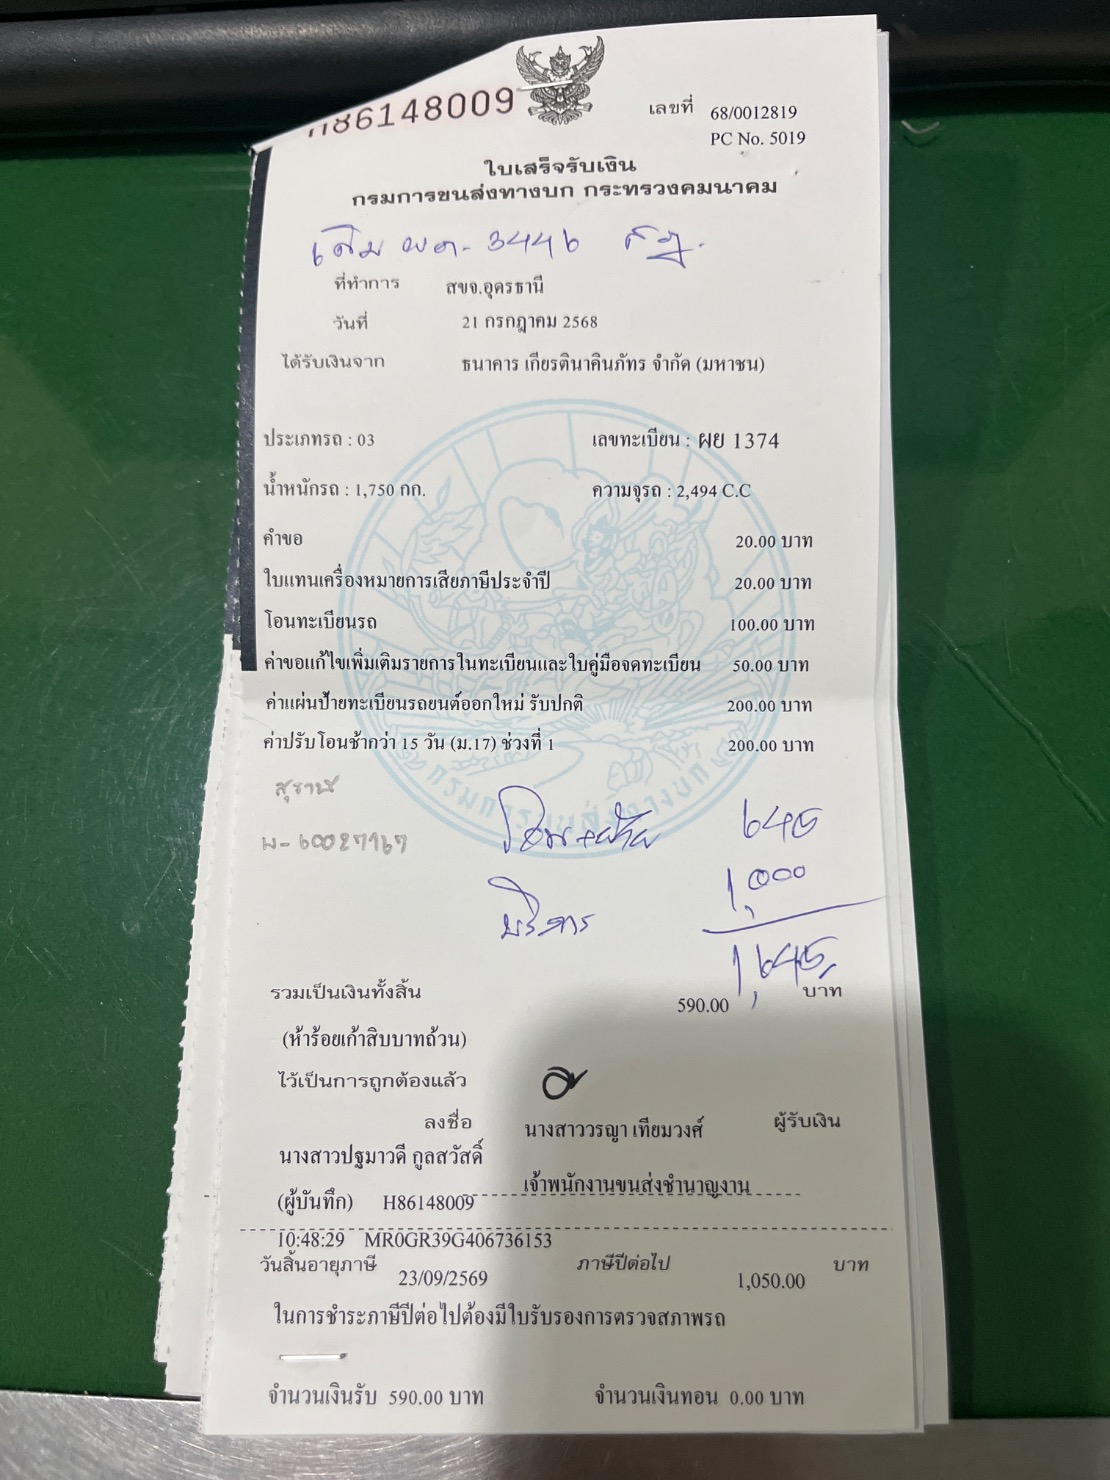 H86148009
เลขที่ 68/0012819
PC No. 5019
ใบเสร็จรับเงิน
กรมการขนส่งทางบก กระทรวงคมนาคม
เดิม ผด-3446
ที่ทำการ สขจ.อุดรธานี
วันที่ 21 กรกฎาคม 2568
ได้รับเงินจาก ธนาคาร เกียรตินาคินภัทร จำกัด (มหาชน)
ประเภทรถ : 03 เลขทะเบียน : ผย 1374
น้ำหนักรถ : 1,750 กก. ความจุรถ : 2,494 C.C
คำขอ 20.00 บาท
ใบแทนเครื่องหมายการเสียภาษีประจำปี 20.00 บาท
โอนทะเบียนรถ 100.00 บาท
ค่าขอแก้ไขเพิ่มเติมรายการในทะเบียนและใบคู่มือจดทะเบียน 50.00 บาท
ค่าแผ่นป้ายทะเบียนรถยนต์ออกใหม่ รับปกติ 200.00 บาท
ค่าปรับโอนช้ากว่า 15 วัน (ม.17) ช่วงที่ 1 200.00 บาท
กรมการขนส่งทางบก
ม-60027167
โอน+ย้าย 645
บริการ 1,000
1,645
รวมเป็นเงินทั้งสิ้น 590.00 บาท
(ห้าร้อยเก้าสิบบาทถ้วน)
ไว้เป็นการถูกต้องแล้ว
ลงชื่อ นางสาววรญา เทียมวงศ์ ผู้รับเงิน
นางสาวปฐมาวดี กูลสวัสดิ์
เจ้าพนักงานขนส่งชำนาญงาน
(ผู้บันทึก) H86148009
10:48:29 MR0GR39G406736153
วันสิ้นอายุภาษี 23/09/2569 ภาษีปีต่อไป 1,050.00 บาท
ในการชำระภาษีปีต่อไปต้องมีใบรับรองการตรวจสภาพรถ
จำนวนเงินรับ 590.00 บาท จำนวนเงินทอน 0.00 บาท